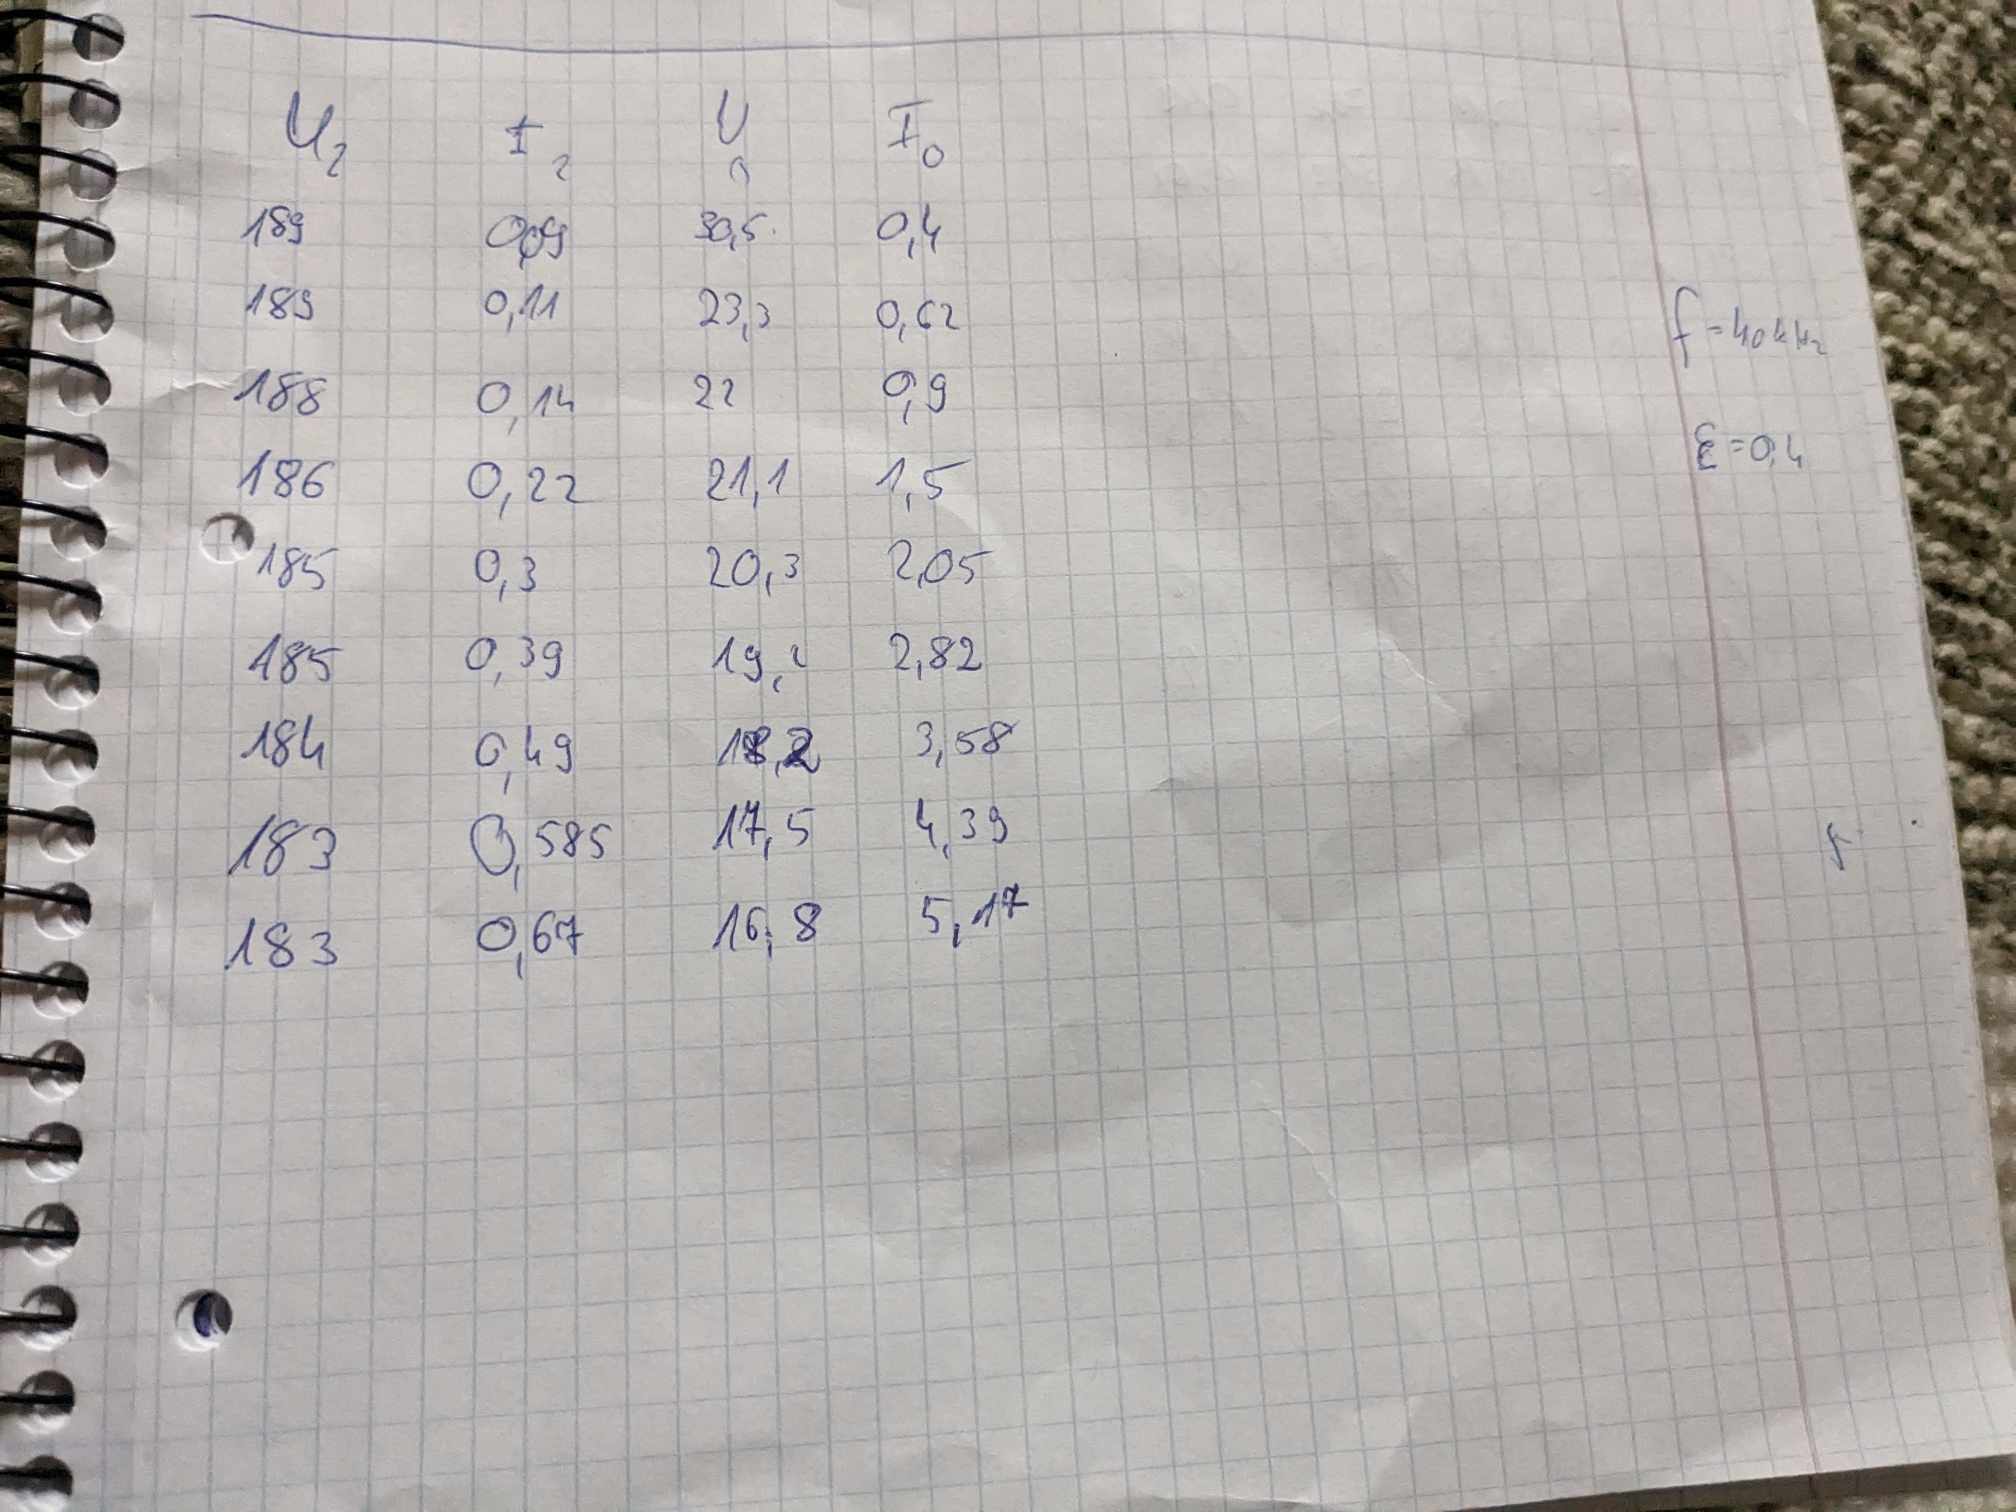 U₂ I₂ U₀ I₀
189 0,09 30,5 0,4
189 0,11 23,3 0,62
f = 40 kHz
188 0,14 22 0,9
ε = 0,4
186 0,22 21,1 1,5
185 0,3 20,3 2,05
185 0,39 2,82
184 0,49 18,2 3,58
183 0,585 17,5 4,39
183 0,67 16,8 5,17